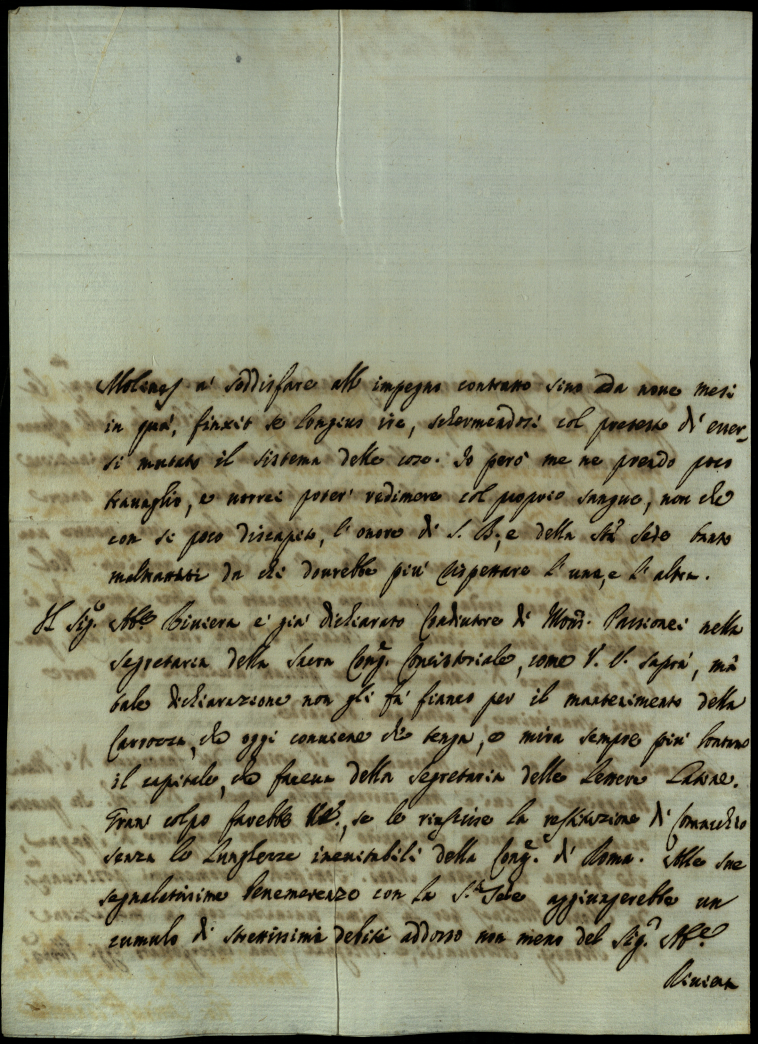 Molenes a' soddisfare all impegno contratto sino da nove mesi
in quà, finxit se longius ire, schermendosi col pretesto di esser-
si mutato il sistema delle cose. Io però me ne prendo poco
travaglio, e vorrei poter' redimere col proprio sangue, non che
con si poco discapito, l'onore di S. B., e della Stã Sede tanto
maltrattati da chi dovrebbe più rispettare l'une, e l'altra.
Il Sig.r Ab.e Riviera e' già dichiarato Coadiutore di Mons. Passionei nella
segretaria della Sacra Cong.e Concistoriale, come V. S. saprà, mà
tale dichiarazione non gli fà fianco per il mantenimento della
Carrozza, che oggi conviene che tenga, e mira sempre più lontano
il capitale, che faceva della Segretaria delle Lettere Latine.
Gran' colpo farebbe se le riuscisse la restituzione di Comacchio
senza le lunghezze inevitabili della Cong.e di Roma. Alle sue
segnalatissime benemerenze con la S.ta Sede aggiungerebbe un
cumulo di strettissimi debiti addosso non meno del Sig.r Ab.e
Riviera